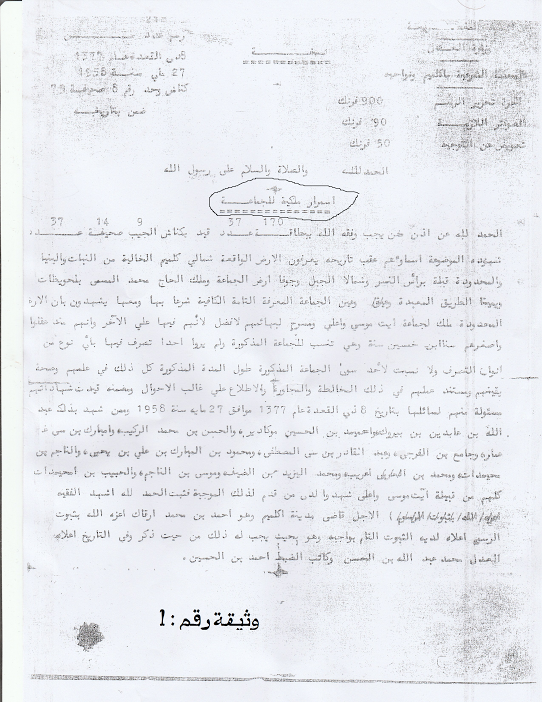 رسم عدد
8 ذي القعدة عام 1377
27 ماي سنة 1958
كناش وحد رقم 8 صحيفة 79
ضمن بتاريخه
نسخة
وزارة العدل
المحكمة الشرعية باكلميم ونواحيه
اجرة تحرير الرسم 900 فرنك
الصوائر اللازمة 90 فرنك
تعويض عن التوجيه 50 فرنك
الحمد لله والصلاة والسلام على رسول الله
استمرار ملكية للجماعة
37 14 9 37 170
الحمد لله عن اذن من يجب وفقه الله ببطاقة عدد قيد بكناش الجيب صحيفة عدد
شهوده الموضوعة اسماؤهم عقب تاريخه يعرفون الارض الواقعة شمالي كلميم الخالية من النبات والبناء
والمحدودة قبلة برأس النسر وشمالا الجبل وجوفا ارض الجماعة وملك الحاج محمد المسمى بلحويطات
الطريق المعبدة وبين الجماعة المعرفة التامة الكافية شرعا بها ومعها يشهدون بان الارض
المحدودة ملك لجماعة ايت موسى واعلي ومسرح لبهائمهم لافضل لاحدهم فيها على الآخر وانهم منذ
واصغرهم سنا ابن خمسين سنة وهي تنسب للجماعة المذكورة ولم يروا احدا تصرف فيها بأي نوع من
انواع التصرف ولا نسبت لأحد سوى الجماعة المذكورة طول المدة المذكورة كل ذلك في علمهم وصحة
يقينهم ومستند علمهم في ذلك المخالطة والمجاورة والاطلاع على غالب الاحوال وبمضمنه قيدت شهادتهم
مسئولة منهم لسائلها بتاريخ 8 ذي القعدة عام 1377 موافق 27 مايه سنة 1958 وممن شهد بذلك عبد
الله بن عابدين بن بيروك واحمد بن الحسين والحسن بن محمد الركيبي وامبارك بن سي
وجامع بن القرجي وعبد القادر بن سي المصطفى ومحمود بن المبارك بن علي بن يحيى والناجم بن
ومحمد اليزيد وموسى بن الناجم والحبيب بن
كلهم من قبيلة ايت موسى واعلي شهد والدى من قدم لذلك الموجبة فثبت الحمد لله اشهد الفقيه
الاجل قاضي مدينة اكلميم وهو احمد بن محمد ارقاك اعزه الله بثبوت
الرسم اعلاه لديه الثبوت التام بواجبه وهو بحيث يجب له ذلك من حيث ذكر وفي التاريخ اعلاه
العدول محمد عبد الله بن الحسن وكاتب الضبط احمد بن الحسين
وثيقة رقم : 1